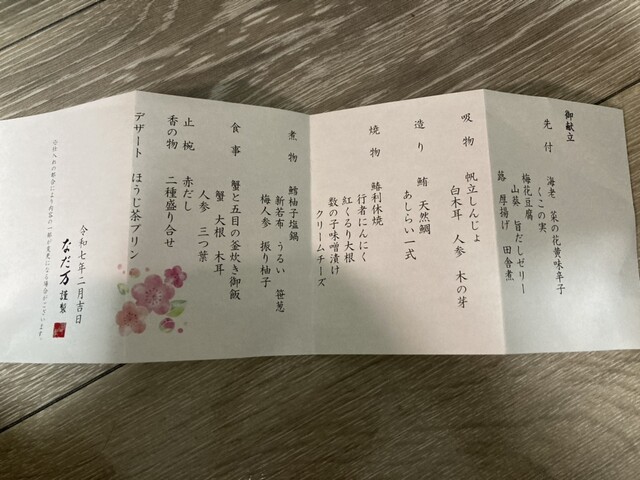 御献立
先付
海老 菜の花黄味辛子
くこの実
梅花豆腐
山葵 旨だしゼリー
蕗 厚揚げ 田舎煮
吸物
帆立しんじょ
白木耳 人参 木の芽
造り
鮪 天然鯛
あしらい一式
焼物
鰆利休焼
行者にんにく
紅くるり大根
数の子味噌漬け
クリームチーズ
煮物
鱈柚子塩鍋
新若布 うるい 笹葱
梅人参 振り柚子
食事
蟹と五目の釜炊き御飯
蟹 大根 木耳
人参 三つ葉
止椀
赤だし
香の物
二種盛り合せ
デザート
ほうじ茶プリン
令和七年二月吉日
なだ万 謹製